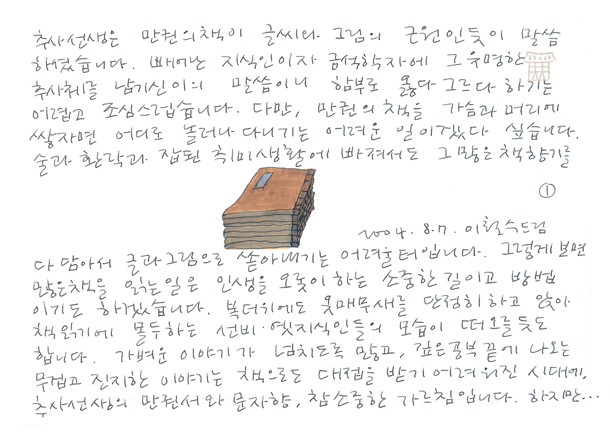 추사선생은 만권의책이 글씨와 그림의 근원인듯이 말씀
하셨습니다. 빼어난 지식인이자 금석학자에 그유명한
추사체를 남기신이의 말씀이니 함부로 옳다 그르다 하기는
어렵고 조심스럽습니다. 다만, 만권의 책을 가슴과 머리에
쌓자면 어디로 놀러나 다니기는 어려운 일이겠다 싶습니다.
술과 환락과 잡된 취미생활에 빠져서도 그많은 책향기를
①
2004. 8.7. 이철수드림
다 담아서 글과그림으로 쏟아내기는 어려울터입니다. 그렇게보면
많은책을 읽는일은 인생을 오롯이하는 소중한길이고 방법
이기도 하겠습니다. 복더위에도 옷매무새를 단정히하고 앉아
책읽기에 몰두하는 선비·옛지식인들의 모습이 떠오를듯도
합니다. 가벼운 이야기가 넘치도록 많고, 깊은공부끝에 나오는
무겁고 진지한 이야기는 책으로도 대접을 받기어려워진 시대에,
추사선생의 만권서와 문자향, 참소중한 가르침입니다. 하지만...